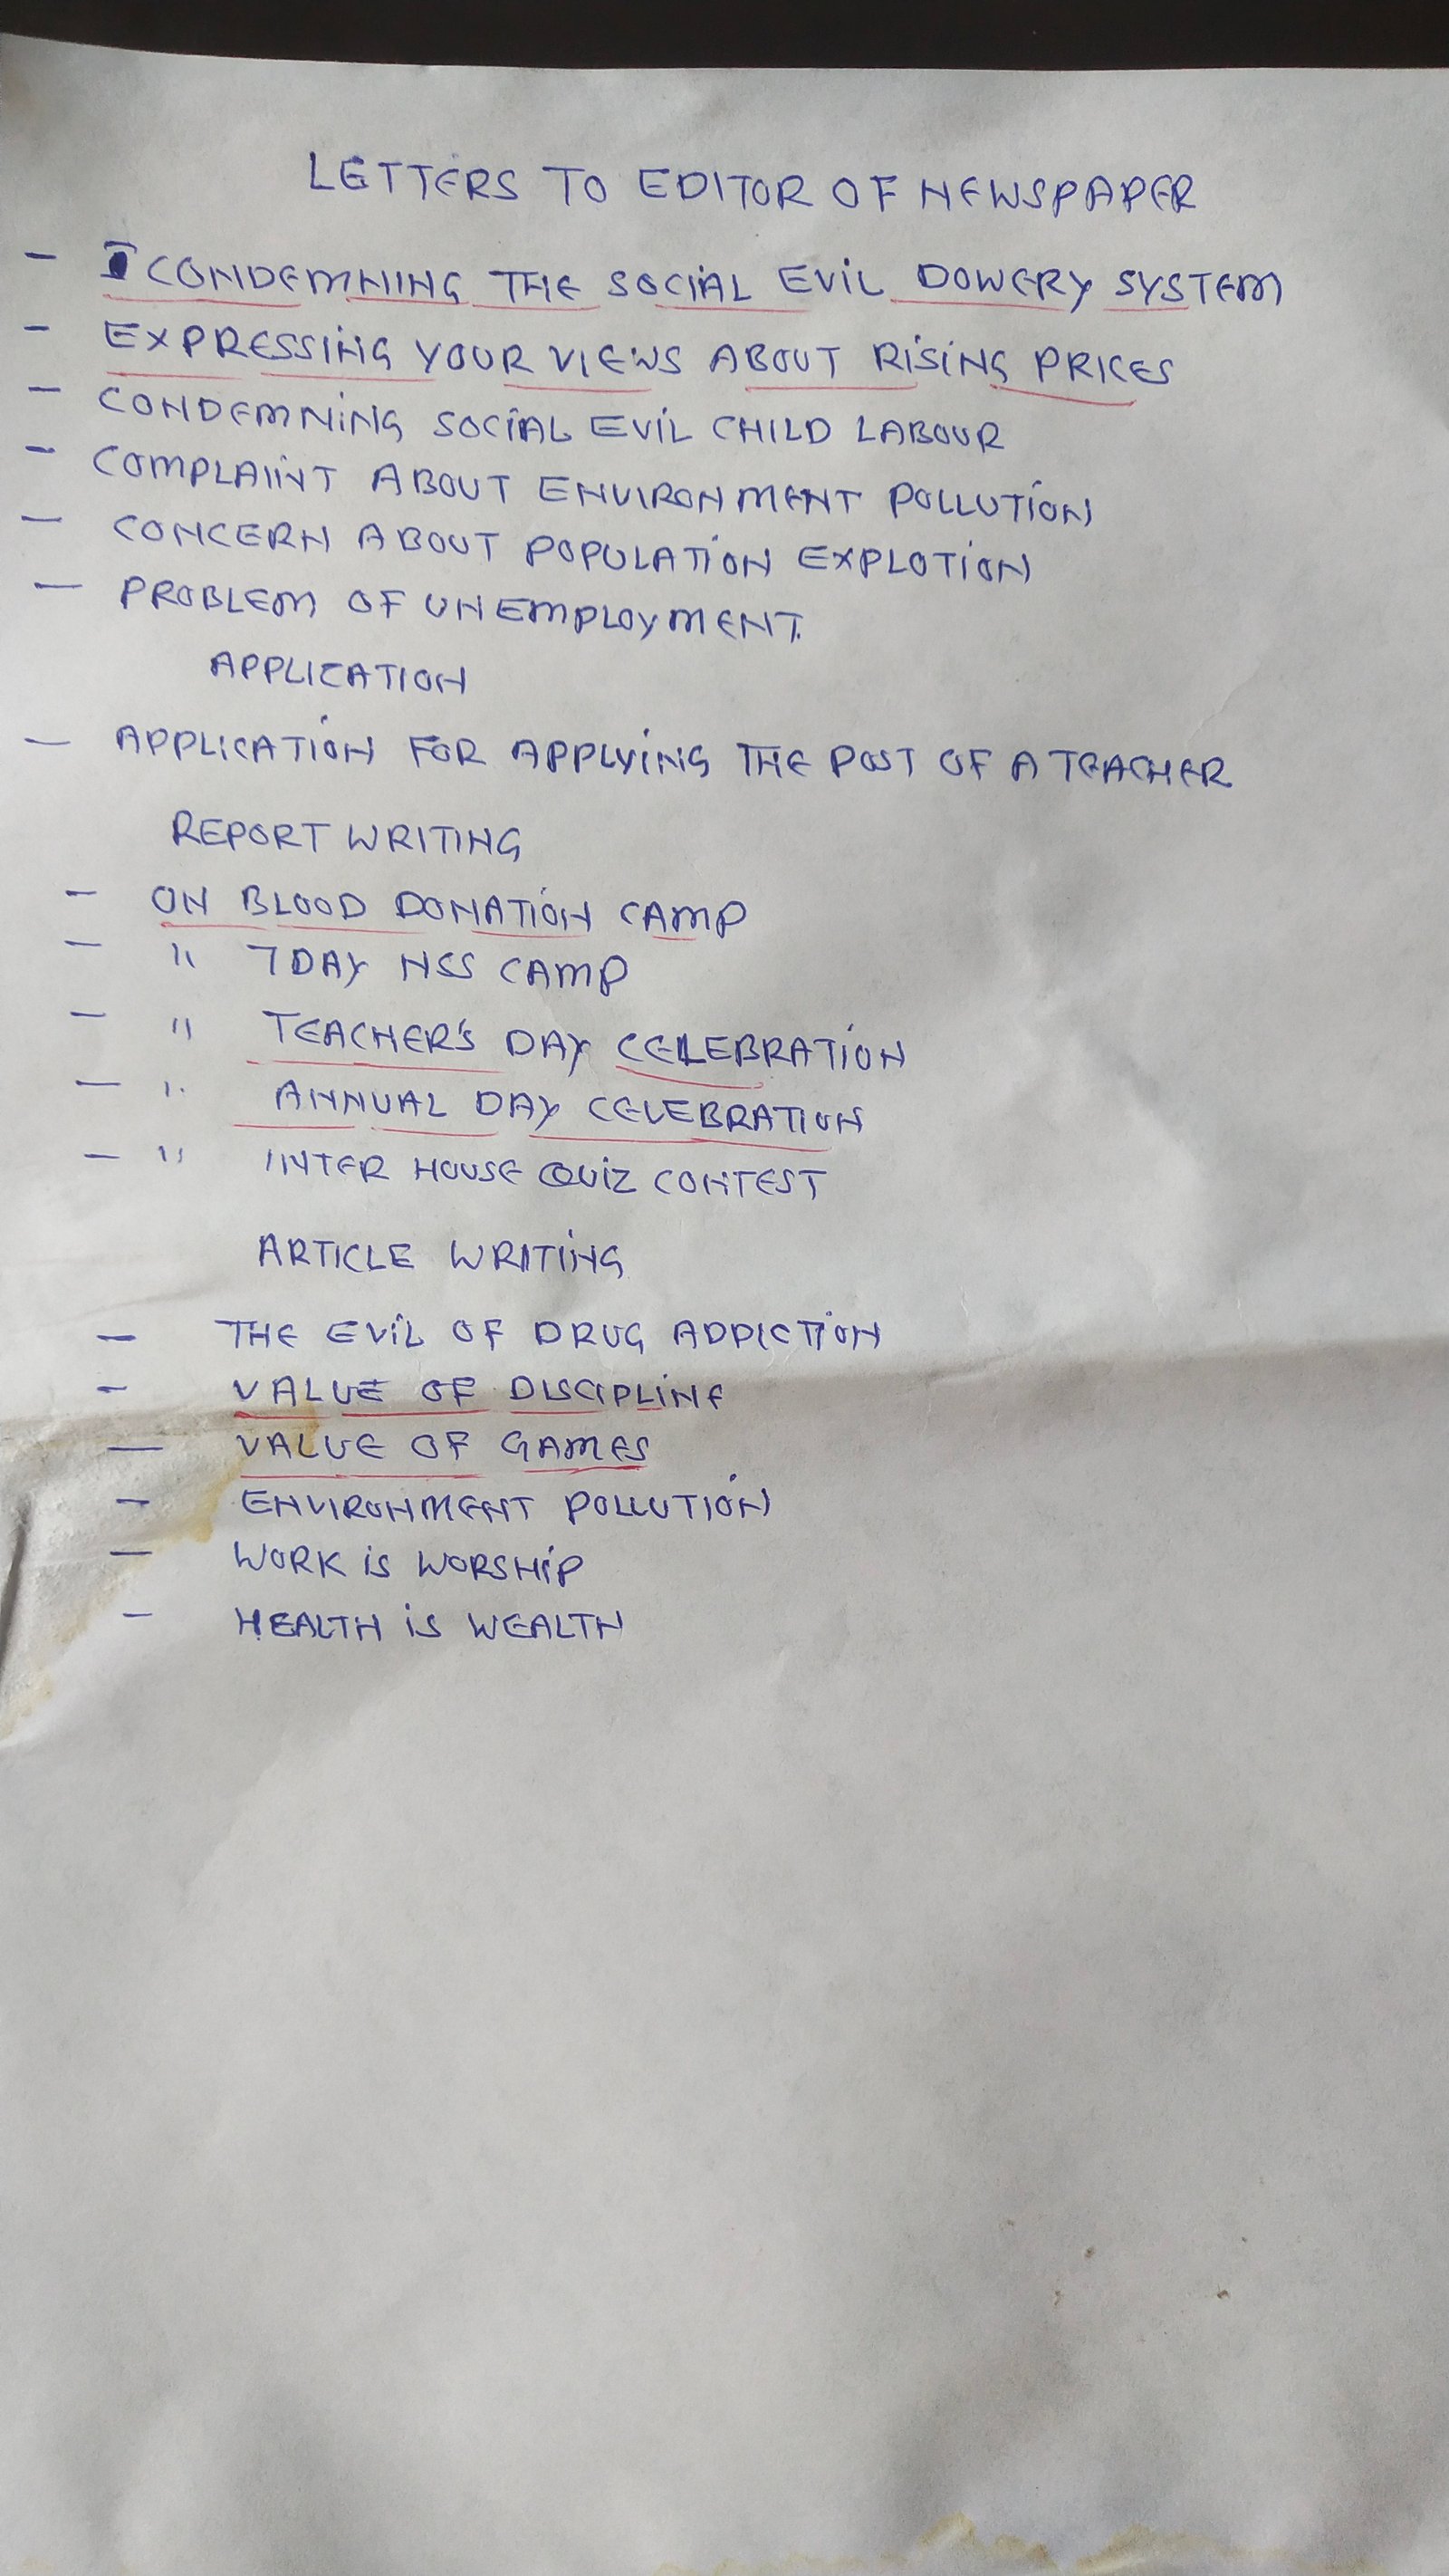 LETTERS TO EDITOR OF NEWSPAPER
- CONDEMNING THE SOCIAL EVIL DOWERY SYSTEM
- EXPRESSING YOUR VIEWS ABOUT RISING PRICES
- CONDEMNING SOCIAL EVIL CHILD LABOUR
- COMPLAINT ABOUT ENVIRONMENT POLLUTION
- CONCERN ABOUT POPULATION EXPLOTION
- PROBLEM OF UNEMPLOYMENT.
APPLICATION
- APPLICATION FOR APPLYING THE POST OF A TEACHER
REPORT WRITING
- ON BLOOD DONATION CAMP
- " 7 DAY NSS CAMP
- " TEACHER'S DAY CELEBRATION
- " ANNUAL DAY CELEBRATION
- " INTER HOUSE QUIZ CONTEST
ARTICLE WRITING
- THE EVIL OF DRUG ADDICTION
- VALUE OF DISCIPLINE
- VALUE OF GAMES
- ENVIRONMENT POLLUTION
- WORK IS WORSHIP
- HEALTH IS WEALTH